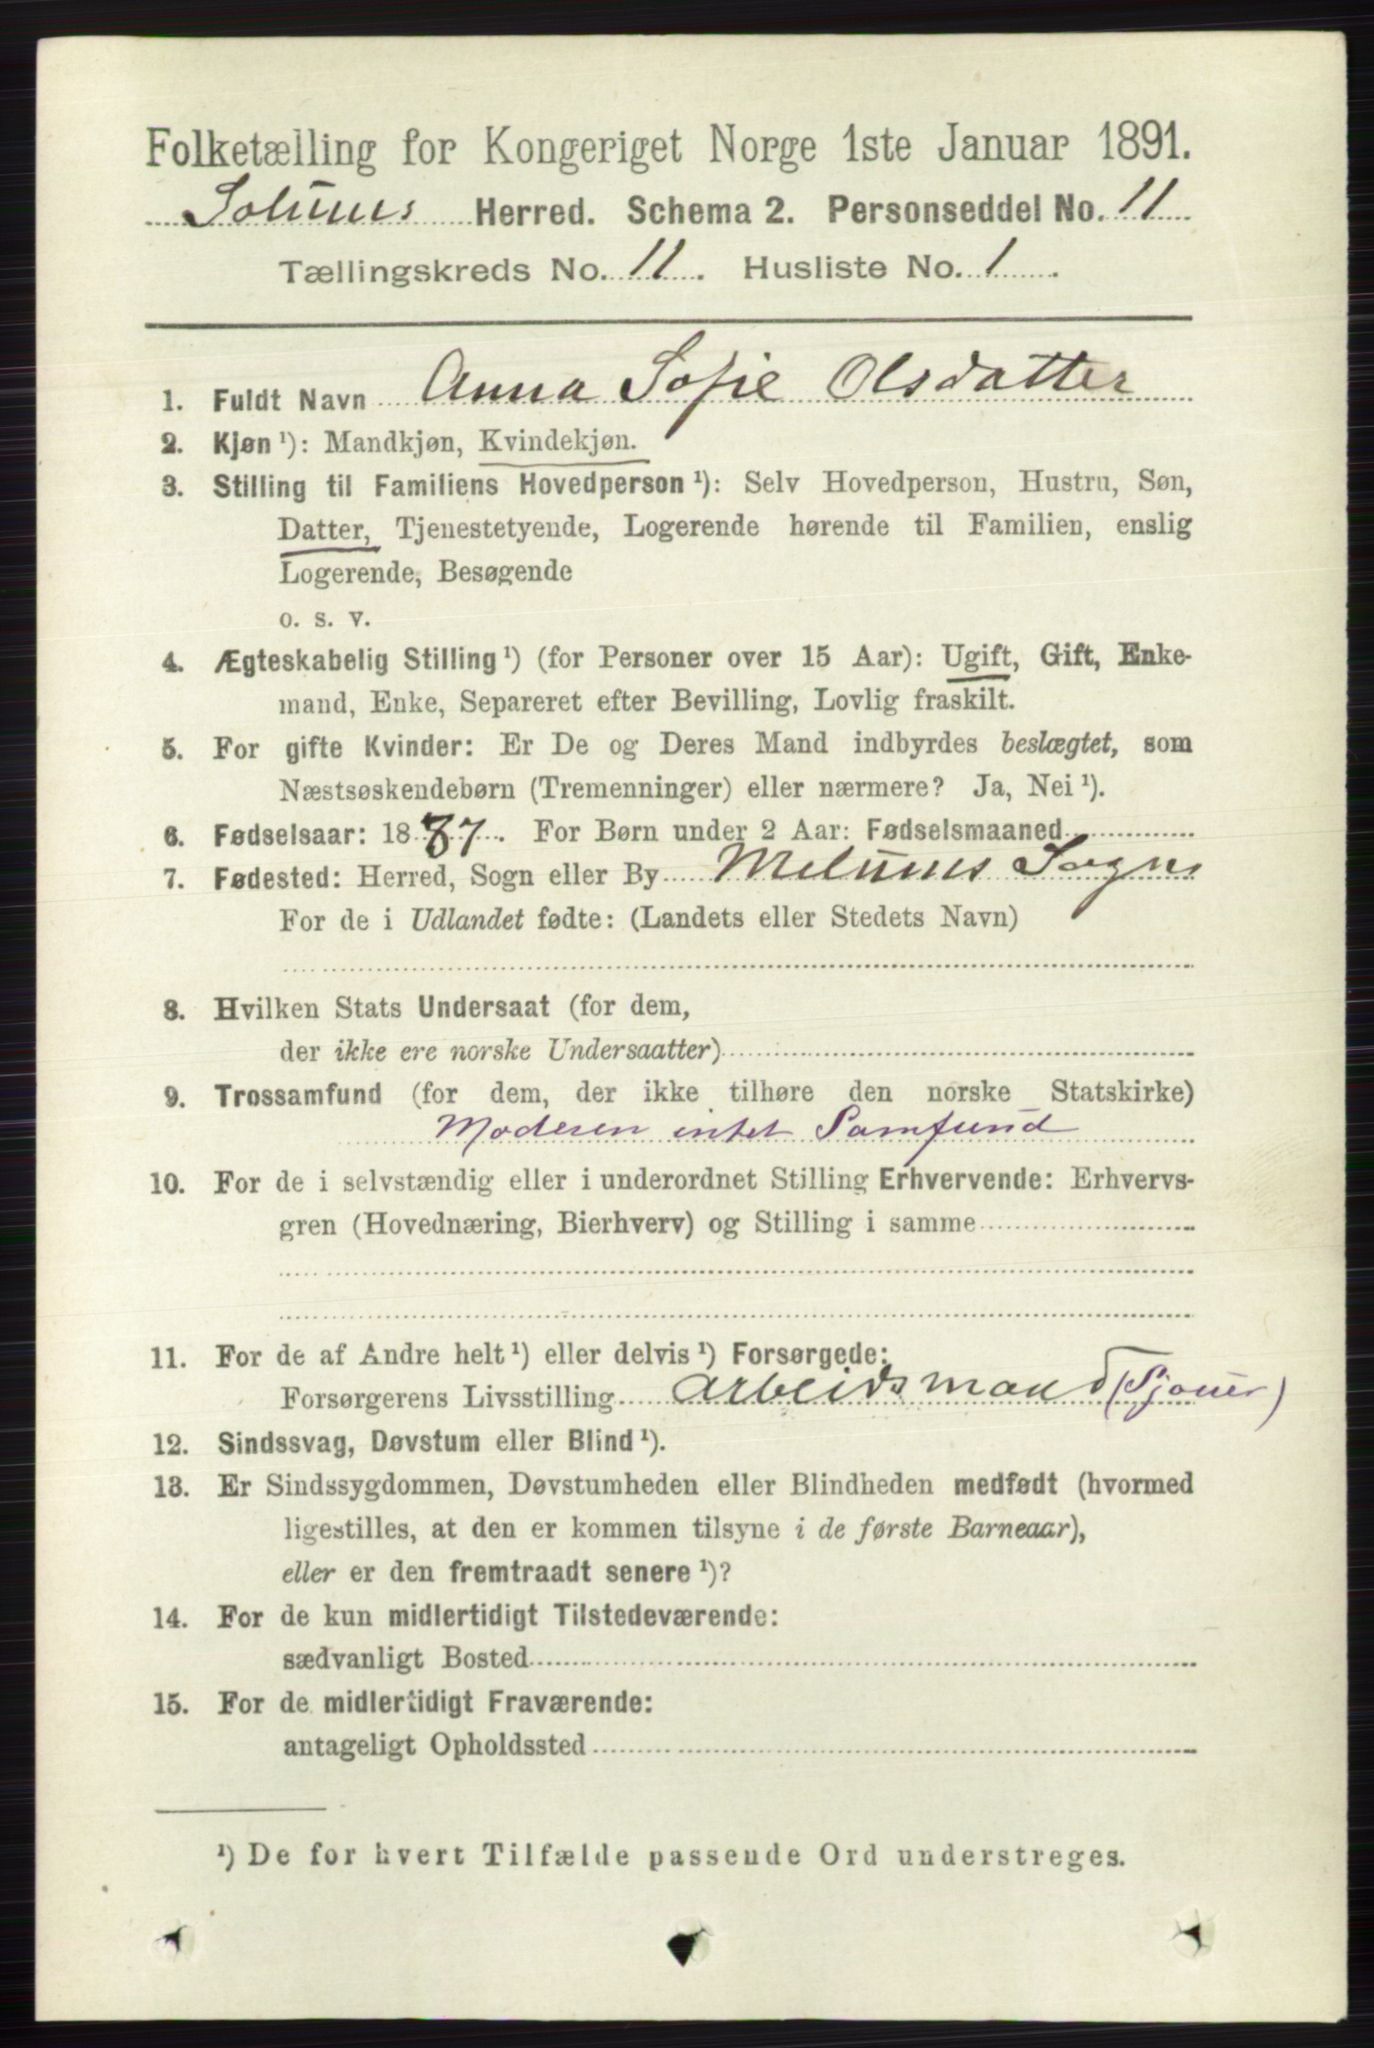 Folketælling for Kongeriget Norge 1ste Januar 1891.
Solums Herred. Schema 2. Personseddel No. 11
Tællingskreds No. 11. Husliste No. 1.
1. Fuldt Navn Anna Sofie Olsdatter
2. Kjøn ¹): Mandkjøn, Kvindekjøn.
3. Stilling til Familiens Hovedperson ¹): Selv Hovedperson, Hustru, Søn,
Datter, Tjenestetyende, Logerende hørende til Familien, enslig
Logerende, Besøgende
o. s. v.
4. Ægteskabelig Stilling ¹) (for Personer over 15 Aar): Ugift, Gift, Enke-
mand, Enke, Separeret efter Bevilling, Lovlig fraskilt.
5. For gifte Kvinder: Er De og Deres Mand indbyrdes beslægtet, som
Næstsøskendebørn (Tremenninger) eller nærmere? Ja, Nei ¹).
6. Fødselsaar: 1887. For Børn under 2 Aar: Fødselsmaaned
7. Fødested: Herred, Sogn eller By Melums Sogn
For de i Udlandet fødte: (Landets eller Stedets Navn)
8. Hvilken Stats Undersaat (for dem,
der ikke ere norske Undersaatter)
9. Trossamfund (for dem, der ikke tilhøre den norske Statskirke)
Moderen intet Samfund
10. For de i selvstændig eller i underordnet Stilling Erhvervende: Erhvervs-
gren (Hovednæring, Bierhverv) og Stilling i samme
11. For de af Andre helt ¹) eller delvis ¹) Forsørgede:
Forsørgerens Livsstilling Arbeidsmand (Sjouer)
12. Sindssvag, Døvstum eller Blind ¹).
13. Er Sindssygdommen, Døvstumheden eller Blindheden medfødt (hvormed
ligestilles, at den er kommen tilsyne i de første Barneaar),
eller er den fremtraadt senere ¹)?
14. For de kun midlertidigt Tilstedeværende:
sædvanligt Bosted
15. For de midlertidigt Fraværende:
antageligt Opholdssted
¹) De for hvert Tilfælde passende Ord understreges.